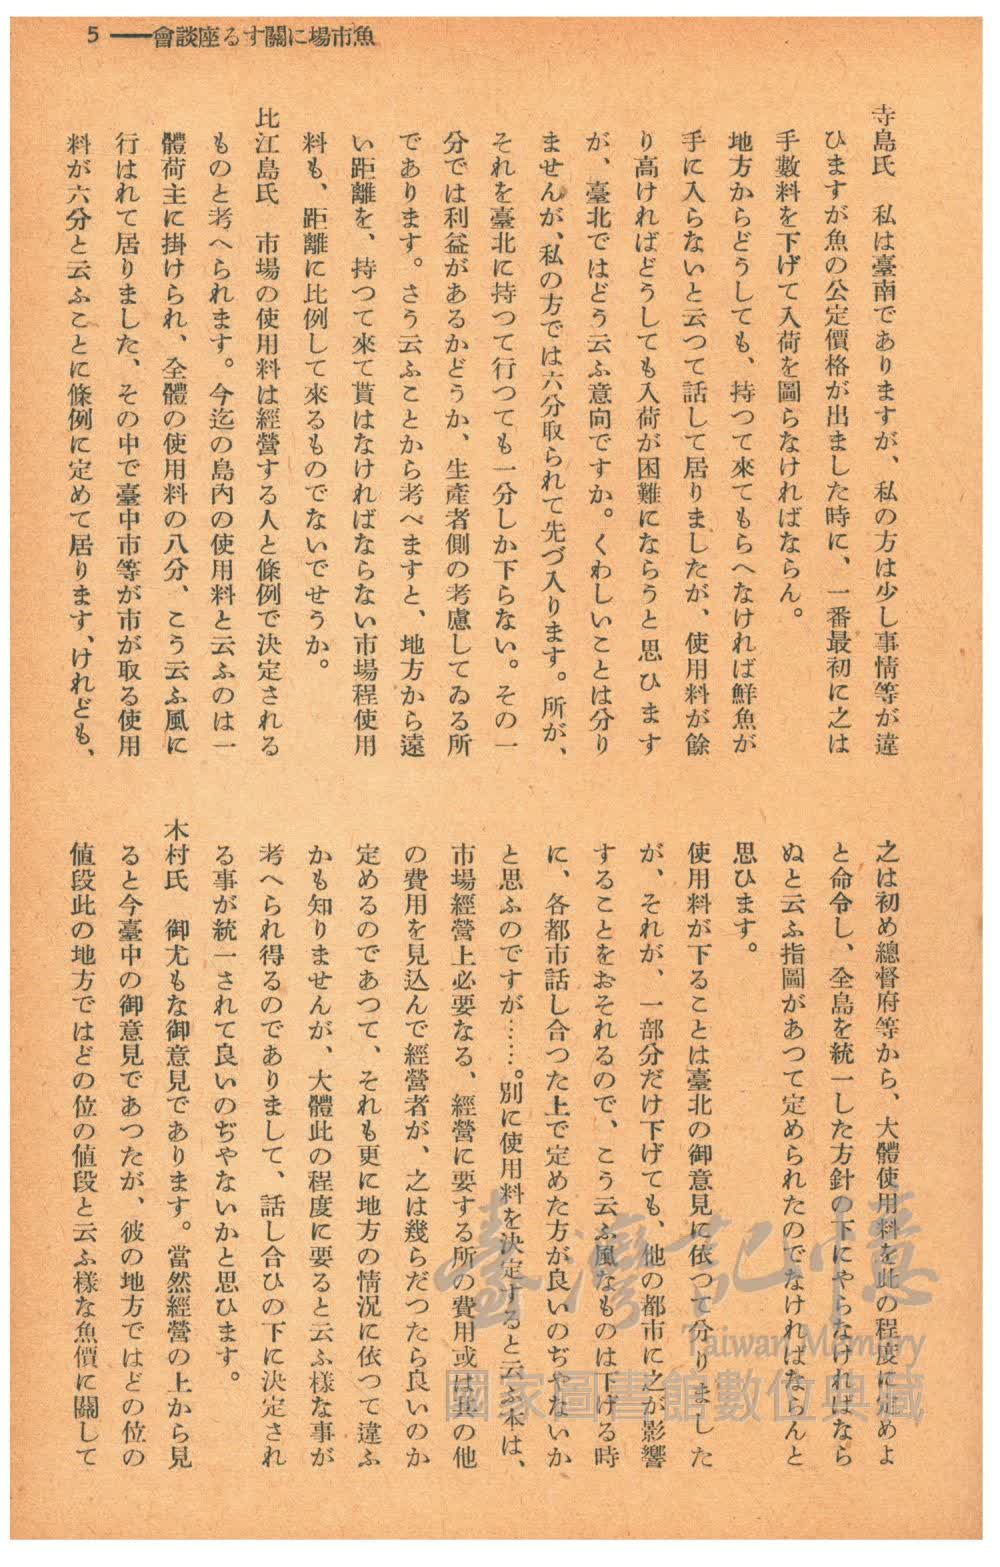 5 ━━會談座るす關に場市魚
寺島氏　私は臺南でありますが、私の方は少し事情等が違
ひますが魚の公定價格が出ました時に、一番最初に之は
手數料を下げて入荷を圖らなければならん。
地方からどうしても、持つて來てもらへなければ鮮魚が
手に入らないと云つて話して居りましたが、使用料が餘
り高ければどうしても入荷が困難にならうと思ひます
が、臺北ではどう云ふ意向ですか。くわしいことは分り
ませんが、私の方では六分取られて先づ入ります。所が、
それを臺北に持つて行つても一分しか下らない。その一
分では利益があるかどうか、生產者側の考慮してゐる所
であります。さう云ふことから考べますと、地方から遠
い距離を、持つて來て貰はなければならない市場程使用
料も、距離に比例して來るものでないでせうか。
比江島氏　市場の使用料は經營する人と條例で決定される
ものと考へられます。今迄の島內の使用料と云ふのは一
體荷主に掛けられ、全體の使用料の八分、こう云ふ風に
行はれて居りました、その中で臺中市等が市が取る使用
料が六分と云ふことに條例に定めて居ります、けれども、
之は初め總督府等から、大體使用料を此の程度に定めよ
と命令し、全島を統一した方針の下にやらなければなら
ぬと云ふ指圖があつて定められたのでなければならんと
思ひます。
使用料が下ることは臺北の御意見に依つて分りました
が、それが、一部分だけ下げても、他の都市に之が影響
することをおそれるので、こう云ふ風なものは下げる時
に、各都市話し合つた上で定めた方が良いのぢやないか
と思ふのですが……。別に使用料を決定すると云ふ本は、
市場經營上必要なる、經營に要する所の費用或は其の他
の費用を見込んで經營者が、之は幾らだつたら良いのか
定めるのであつて、それも更に地方の情況に依つて違ふ
かも知りませんが、大體此の程度に要ると云ふ樣な事が
考へられ得るのでありまして、話し合ひの下に決定され
る事が統一されて良いのぢやないかと思ひます。
木村氏　御尤もな御意見であります。當然經營の上から見
ると今臺中の御意見であつたが、彼の地方ではどの位の
値段此の地方ではどの位の値段と云ふ樣な魚價に關して
臺灣記憶
Taiwan Memory
國家圖書館數位典藏